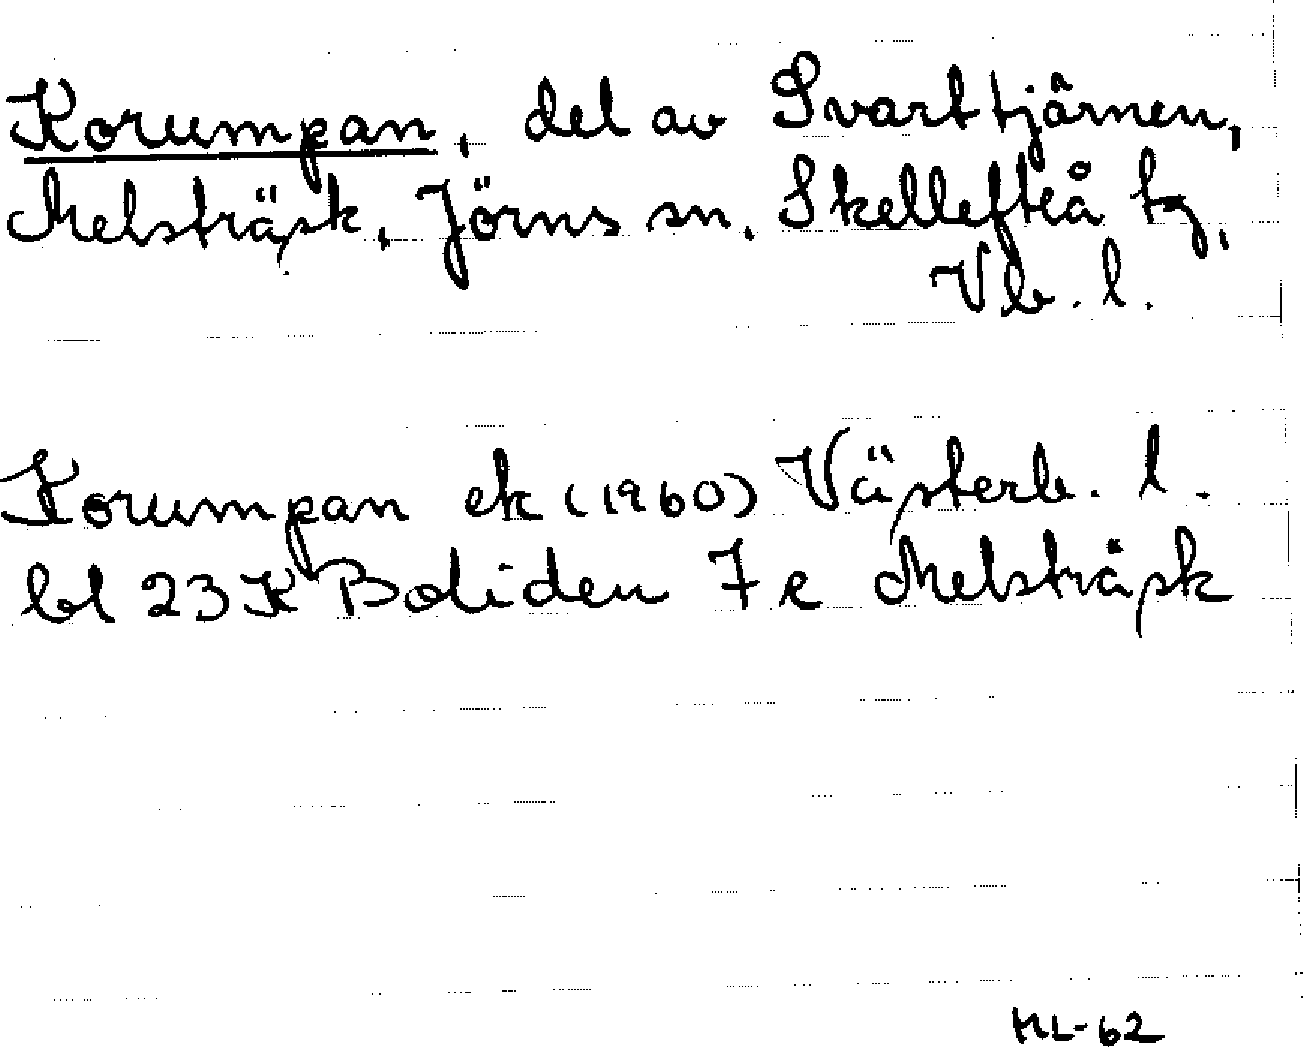 Korumpan, del av Svarttjärnen,
Melsträsk, Jörns sn, Skellefteå tg,
Vb. l.
Korumpan ek (1960) Västerb. l.
bl 23 K Boliden 7 e Melsträsk
HL-62